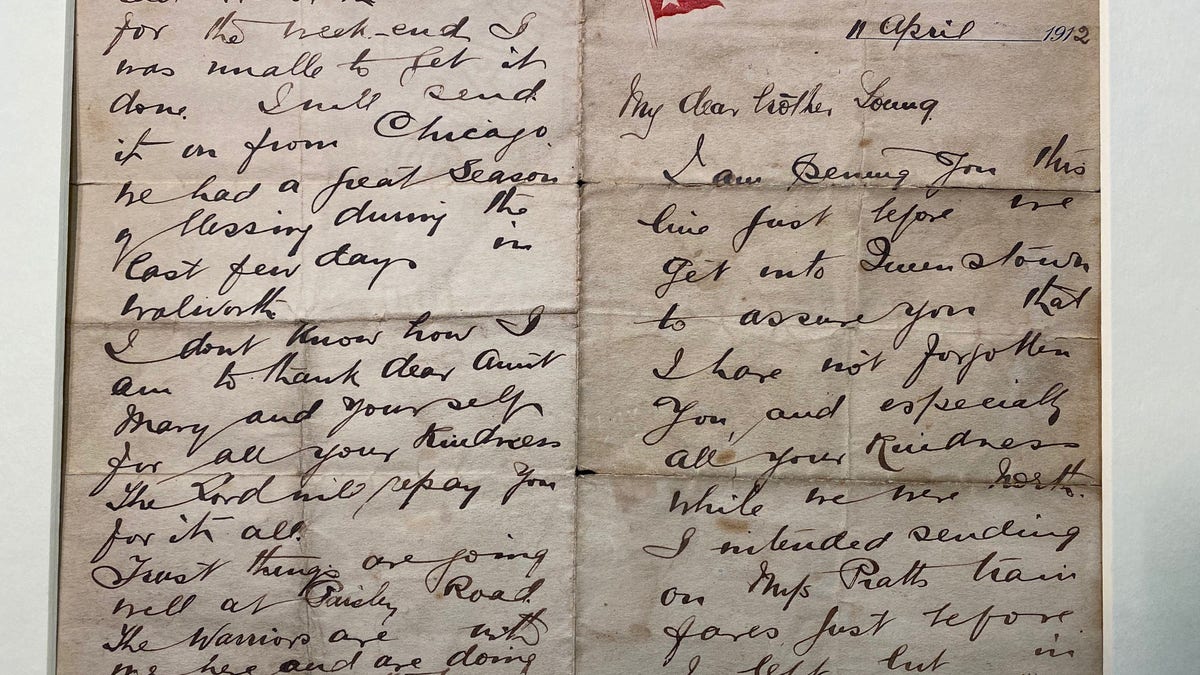 11 April 1912
My dear brother Young.
I am penning you this
line just before we
get into Queenstown
to assure you that
I have not forgotten
you, and especially
all your kindness
while we were North.
I intended sending
on Miss Pratts train
fares just before
I left but in
for the week-end I
was unable to get it
done. I will send
it on from Chicago.
We had a great season
of blessing during the
last few days in
Walworth
I dont know how I
am to thank dear Aunt
Mary and yourself
for all your kindness
The Lord will repay you
for it all.
Trust things are going
well at Paisley Road.
The Warriors are with
me here and are doing